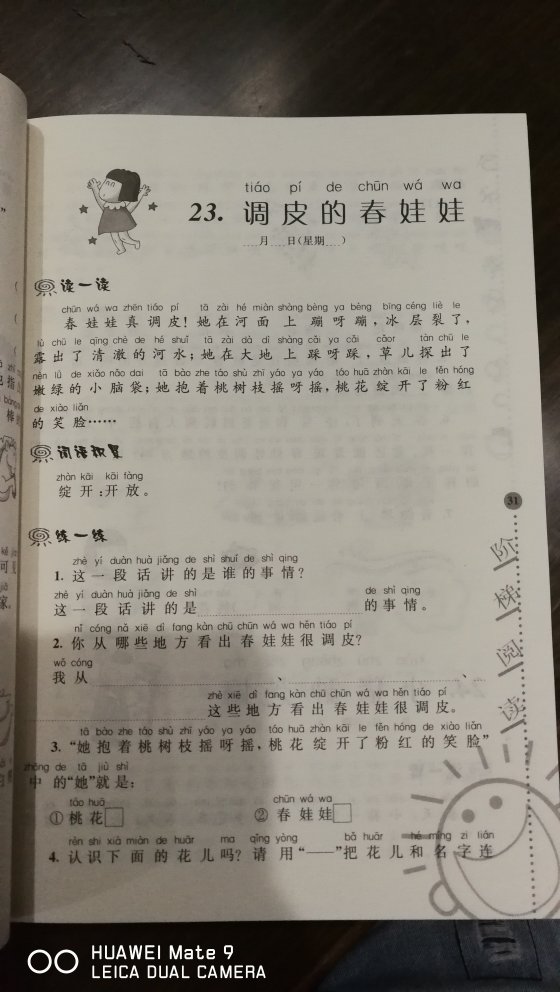 tiáo pí de chūn wá wa
23. 调皮的春娃娃
月 日(星期 )
读一读
chūn wá wa zhēn tiáo pí tā zài hé miàn shàng bèng ya bèng bīng céng liè le
春娃娃真调皮!她在河面上蹦呀蹦,冰层裂了,
lù chū le qīng chè de hé shuǐ tā zài dà dì shàng cǎi ya cǎi cǎor tàn chū le
露出了清澈的河水;她在大地上踩呀踩,草儿探出了
nèn lǜ de xiǎo nǎo dai tā bào zhe táo shù zhī yáo ya yáo táo huā zhàn kāi le fěn hóng
嫩绿的小脑袋;她抱着桃树枝摇呀摇,桃花绽开了粉红
de xiào liǎn
的笑脸……
词语积累
zhàn kāi kāi fàng
绽开:开放。
练一练
zhè yí duàn huà jiǎng de shì shuí de shì qing
1. 这一段话讲的是谁的事情?
zhè yí duàn huà jiǎng de shì de shì qing
这一段话讲的是 的事情。
nǐ cóng nǎ xiē dì fang kàn chū chūn wá wa hěn tiáo pí
2. 你从哪些地方看出春娃娃很调皮?
wǒ cóng
我从 、 、
zhè xiē dì fang kàn chū chūn wá wa hěn tiáo pí
这些地方看出春娃娃很调皮。
tā bào zhe táo shù zhī yáo ya yáo táo huā zhàn kāi le fěn hóng de xiào liǎn
3. “她抱着桃树枝摇呀摇,桃花绽开了粉红的笑脸”
zhōng de tā jiù shì
中的“她”就是:
táo huā chūn wá wa
①桃花□ ②春娃娃□
rèn shi xià miàn de huār ma qǐng yòng bǎ huār hé míng zi lián
4. 认识下面的花儿吗?请用“——”把花儿和名字连
31
阶梯阅读
HUAWEI Mate 9
LEICA DUAL CAMERA